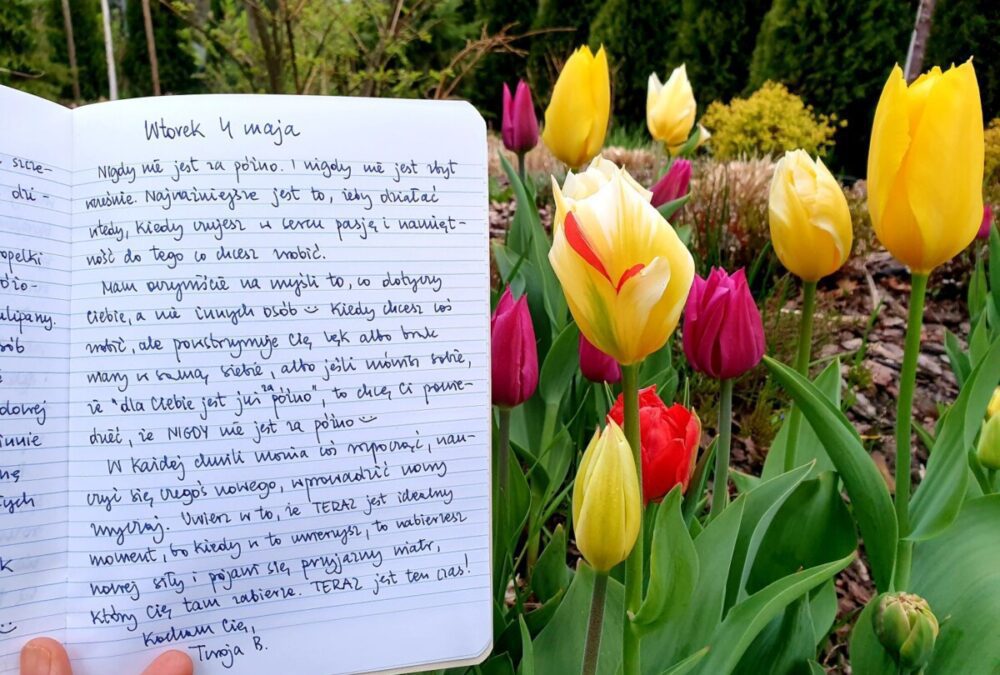 szcze-
dzi-
opelki
ulipany.
sób
dowej
innie
nę
ych
k
Wtorek 4 maja
Nigdy nie jest za późno. I nigdy nie jest zbyt
wcześnie. Najważniejsze jest to, żeby działać
wtedy, kiedy czujesz w sercu pasję i namięt-
ność do tego co chcesz zrobić.
Mam oczywiście na myśli to, co dotyczy
Ciebie, a nie innych osób Kiedy chcesz coś
zrobić, ale powstrzymuje Cię lęk albo brak
wiary w samą siebie, albo jeśli mówisz sobie,
że "dla Ciebie jest już za późno", to chcę Ci powie-
dzieć, że NIGDY nie jest za późno
W każdej chwili można coś rozpocząć, nau-
czyć się czegoś nowego, wprowadzić nowy
zwyczaj. Uwierz w to, że TERAZ jest idealny
moment, bo kiedy w to uwierzysz, to nabierzesz
nowej siły i pojawi się przyjazny wiatr,
który Cię tam zabierze. TERAZ jest ten czas!
Kocham Cię,
Twoja B.